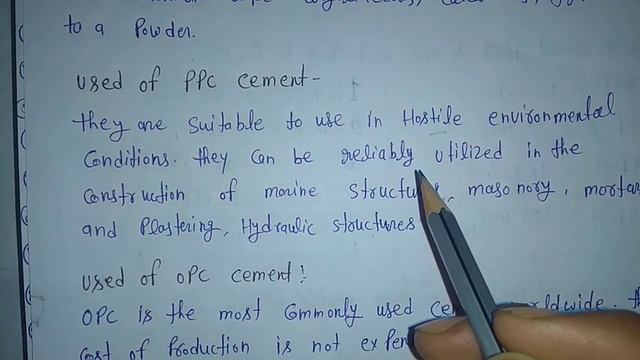 to a Powder.
used of PPC cement-
they are Suitable to use in Hostile environmental
Conditions. they can be reliably utilized in the
Construction of marine Structu masonory, mortar
and Plastering, Hydraulic structures
used of OPC cement!
OPC is the most Commonly used Ce rldwide. th
Cost of Production is not expen